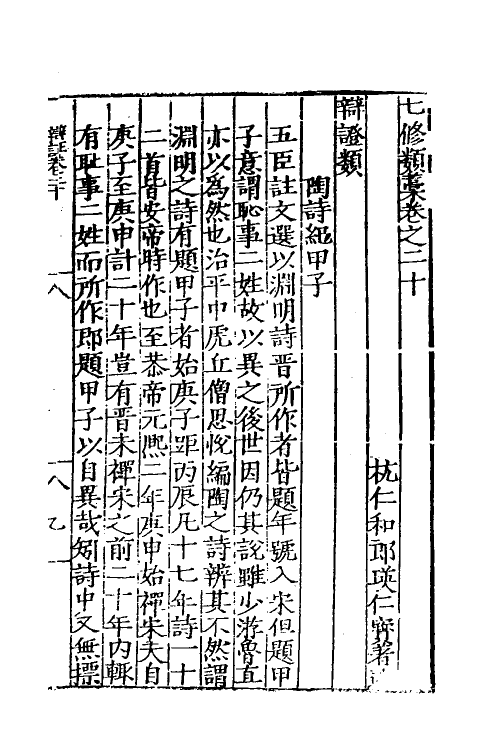 七修類藁卷之二十
杭仁和郎瑛仁寳著
辯證類
陶詩紀甲子
五臣註文選以淵明詩晋所作者皆題年號入宋但題甲
子意謂恥事二姓故以異之後世因仍其說雖少游魯直
亦以爲然也治平中虎丘僧思悅編陶之詩辨其不然謂
淵明之詩有題甲子者始庚子距丙辰凡十七年詩一十
二首皆安帝時作也至恭帝元熈二年庚申始禪宋夫自
庚子至庚申計二十年豈有晋未禪宋之前二十年内輙
有恥事二姓而所作即題甲子以自異哉矧詩中又無摽
辯證卷二十
八
八九